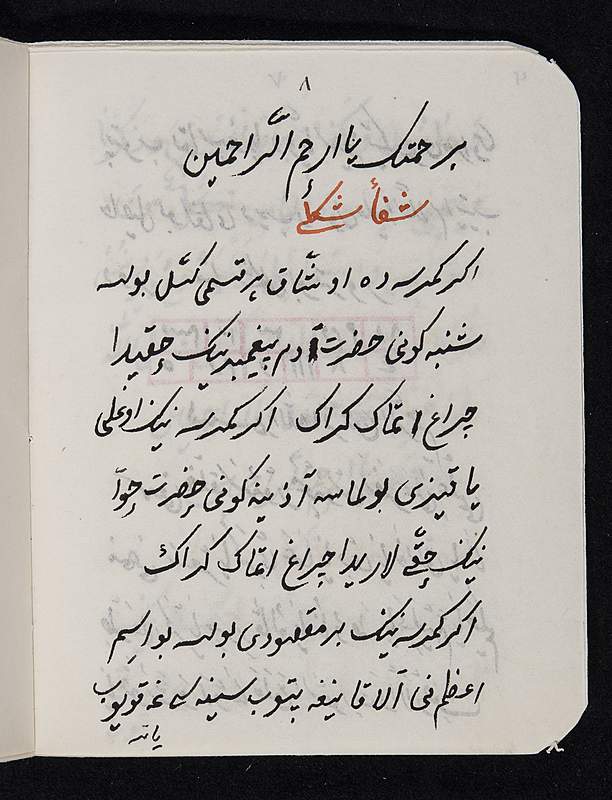 ٨
برحمتک یا ارحم الراحمین
شفأ شکلی
اگر کمرسه ده اوشّاق هر قتیمی کسل بولسه
شنبه کونی حضرت آدم پیغمبرنیک حقیدا
چراغ اتماک کراک اگر کمرسه نیک اوغلی
یا قیزی بولماسه آذینه کونی حضرت حوّا
نیک حقّی لاریدا چراغ اتماک کراک
اگر کمرسه نیک بر مقصودی بولسه بو اسم
اعظم نی آلاقانیغه بیتوب سینه سی غه قویوب
یاته